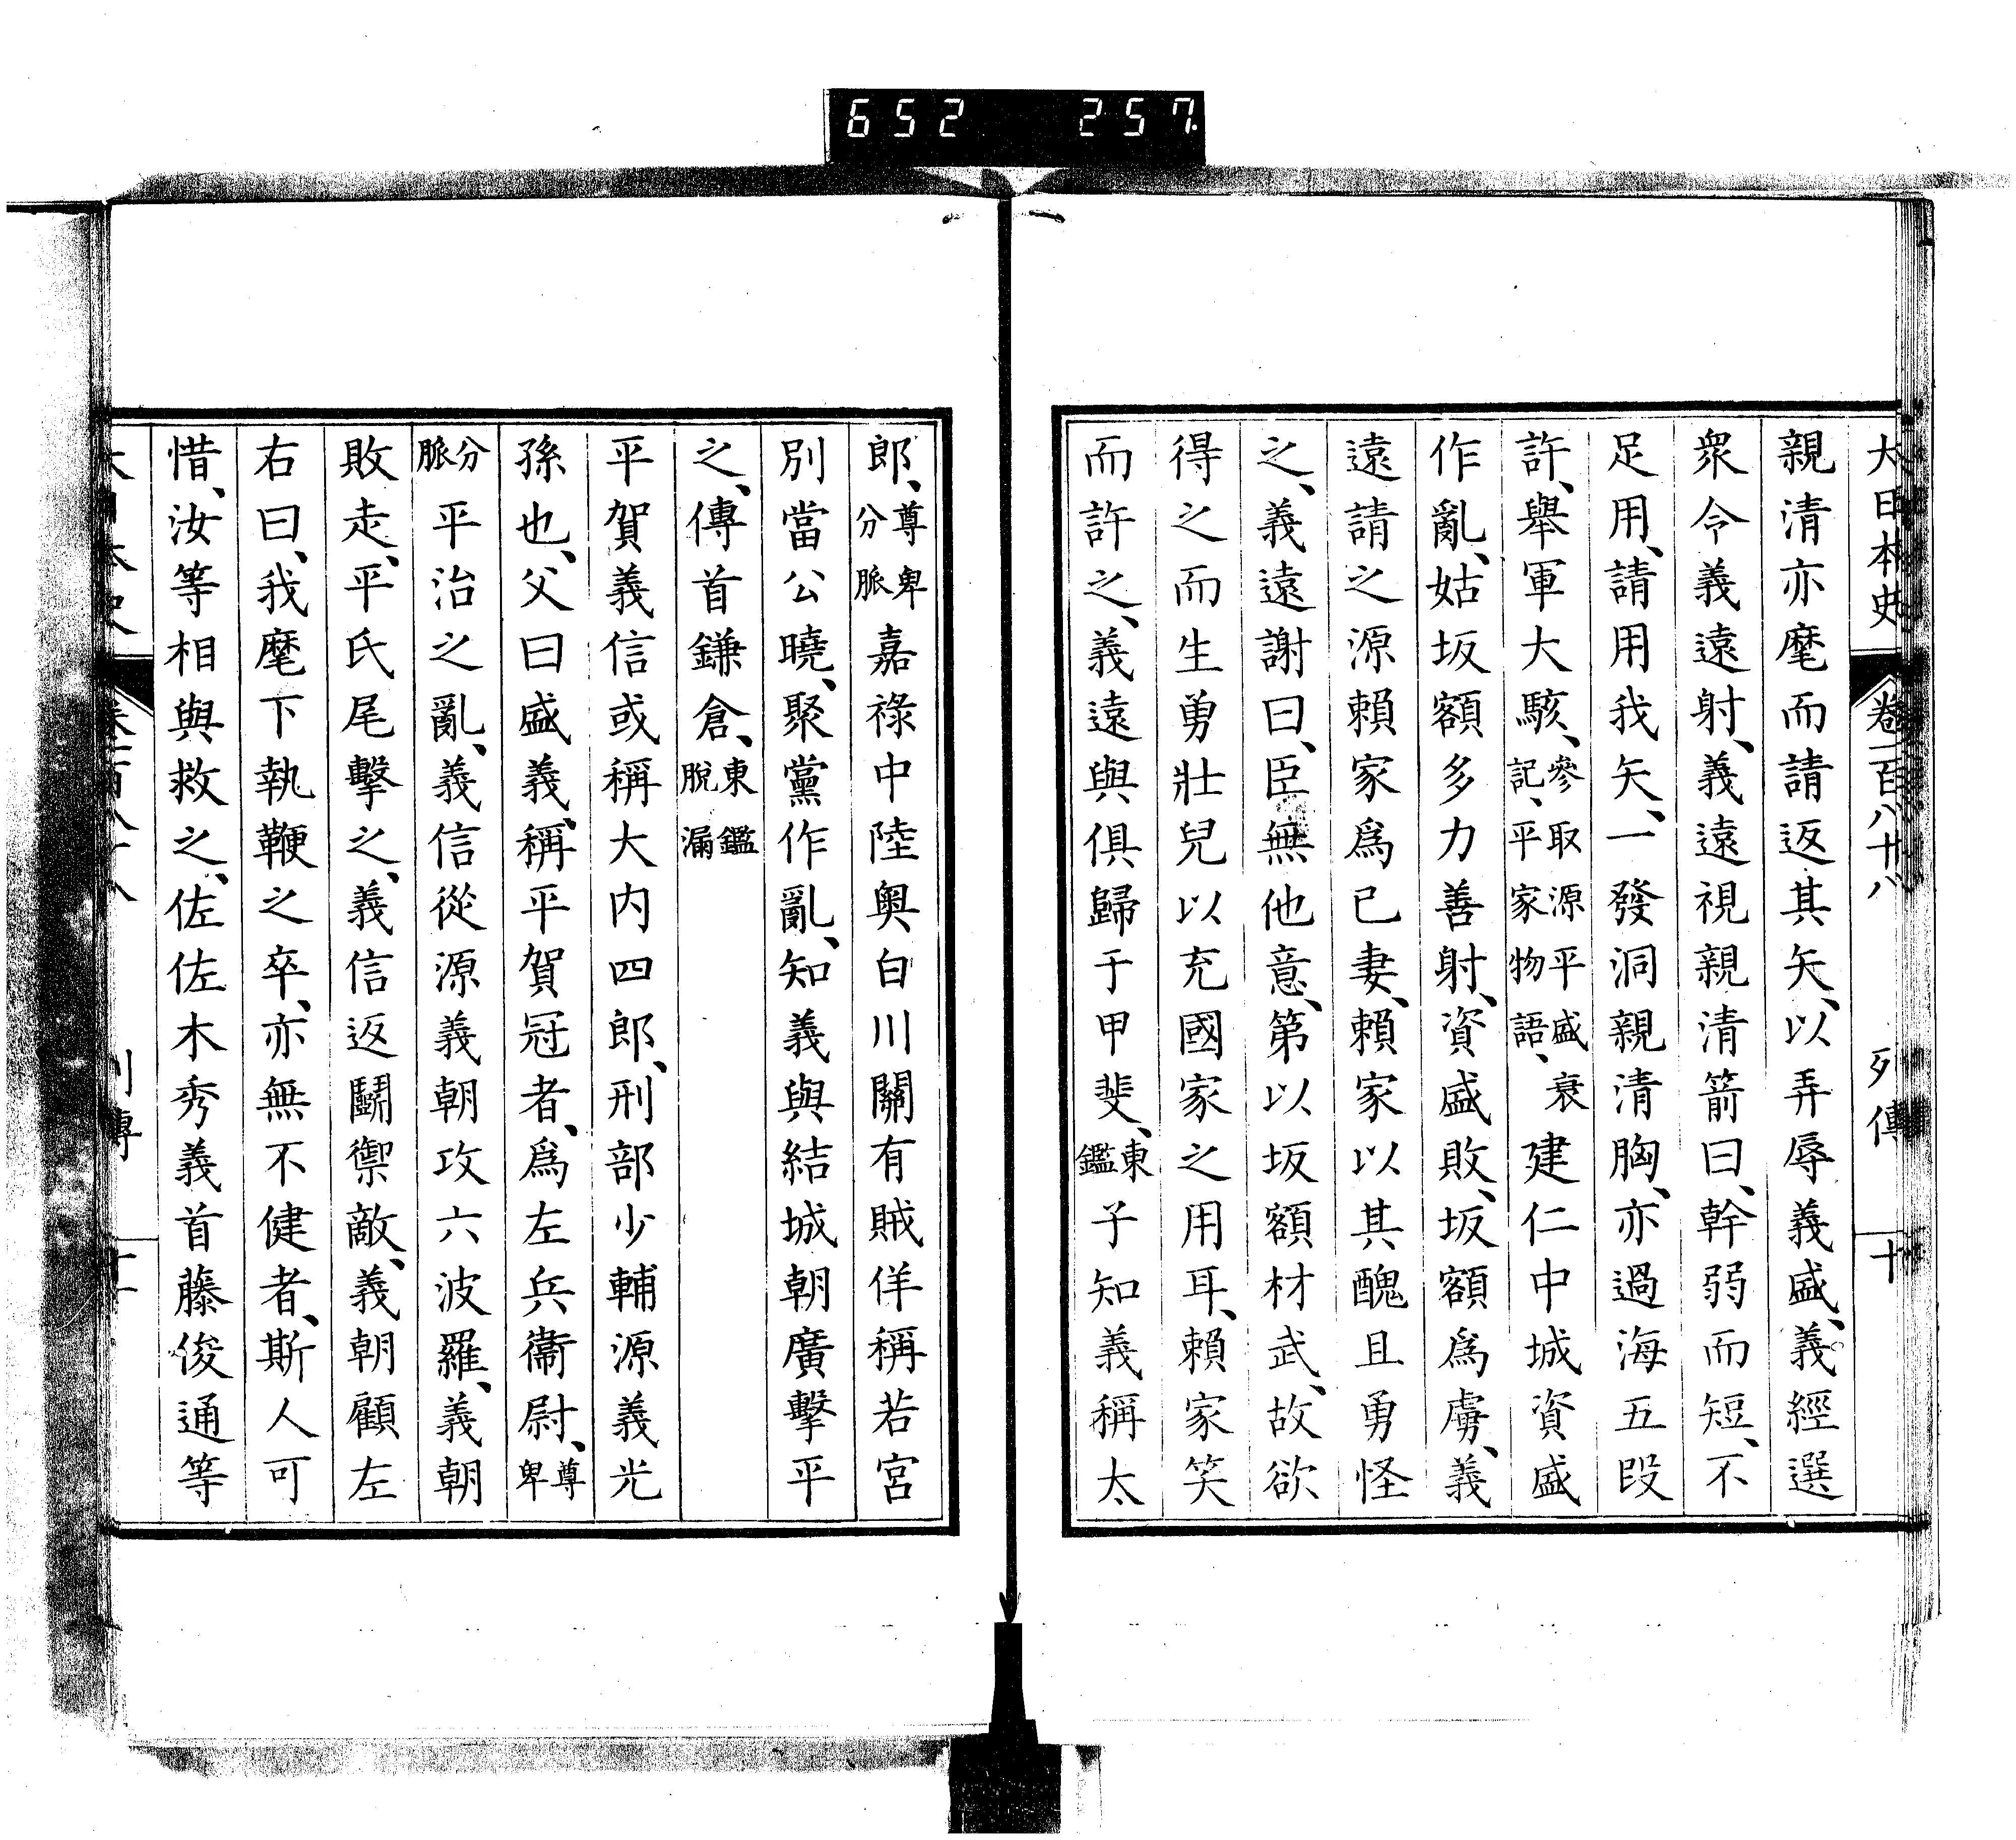 652 257
大日本史 卷一百八十八 列傳 十
親清亦麾而請返其矢、以弄辱義盛、義經選
衆令義遠射、義遠視親清箭曰、幹弱而短、不
足用、請用我矢、一發洞親清胸、亦過海五段
許、擧軍大駭、參取源平盛衰記、平家物語、建仁中城資盛
作亂、姑坂額多力善射、資盛敗、坂額爲虜、義
遠請之源賴家爲己妻、賴家以其醜且勇怪
之、義遠謝曰、臣無他意、第以坂額材武、故欲
得之而生勇壯兒以充國家之用耳、賴家笑
而許之、義遠與俱歸于甲斐、東鑑子知義稱太
郎、尊卑分脈嘉祿中陸奧白川關有賊佯稱若宮
別當公曉、聚黨作亂、知義與結城朝廣擊平
之、傳首鎌倉、東鑑脫漏
平賀義信或稱大内四郎、刑部少輔源義光
孫也、父曰盛義、稱平賀冠者、爲左兵衞尉、尊卑
分脈平治之亂、義信從源義朝攻六波羅、義朝
敗走、平氏尾擊之、義信返鬬禦敵、義朝顧左
右曰、我麾下執鞭之卒、亦無不健者、斯人可
惜、汝等相與救之、佐佐木秀義首藤俊通等